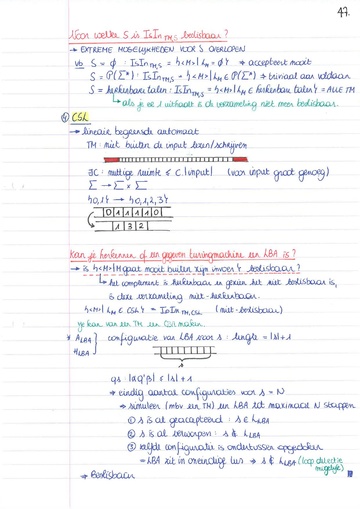 47.
Voor welke S is IsIn TM,S beslisbaar?
→ EXTREME MOGELIJKHEDEN VOOR S OVERLOPEN
vb S = ∅ : IsIn TM,S = {<M> | L_M = ∅} → accepteert nooit
S = P(Σ*) : IsIn TM,S = {<M> | L_M ∈ P(Σ*)} → triviaal aan voldaan
S = herkenbare talen : IsIn TM,S = {<M> | L_M ∈ herkenbare talen} = ALLE TM
↳ als je er 1 uithaalt is de verzameling niet meer beslisbaar.
CSL
→ lineair begrensde automaat
TM : niet buiten de input lezen/schrijven
∃C : nuttige ruimte ≤ C.|input| (voor input groot genoeg)
Σ → Σ × Σ
{0,1} → {0,1,2,3}
0 1 1 1 1 0
1 3 2
Kan je herkennen of een gegeven turingmachine een LBA is?
→ is {<M> | M gaat nooit buiten zijn invoer} beslisbaar?
↳ het complement is herkenbaar en gezien het niet beslisbaar is,
is deze verzameling niet-herkenbaar.
{<M> | L_M ∈ CSL} = IsIn TM,CSL (niet-beslisbaar)
je kan van een TM een CSA maken.
* A_LBA } configuratie van LBA voor s : lengte = |s|+1
H_LBA
s
qs : |αqβ| ≤ |s|+1
→ eindig aantal configuraties voor s = N
→ simuleer (mbv een TM) een LBA tot maximaal N stappen
① s is al geaccepteerd : s ∈ L_LBA
② s is al verworpen : s ∉ L_LBA
③ zelfde configuratie is ondertussen opgedoken
= LBA zit in oneindige lus → s ∉ L_LBA (loop detectie mogelijk)
→ Beslisbaar